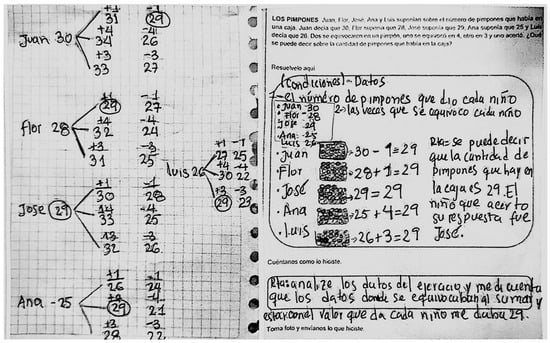 +1 -1
31 29
Juan 30 +4 -4
34 26
+3 -3
33 27
+1 -1
29 27
Flor 28 +4 -4
32 24
+3 -3
31 25
+1 -1
30 28
Jose 29 +4 -4
33 25
+3 -3
32 26
+1 -1
26 24
Ana -25 +4 -4
29 21
+3 -3
28 22
+1 -1
27 25
Luis 26 +4 -4
30 22
+3 -3
29 23
LOS PIMPONES Juan, Flor, José, Ana y Luis suponían sobre el número de pimpones que había en
una caja. Juan decía que 30, Flor suponía que 28, José suponía que 29, Ana suponía que 25 y Luis
decía que 26. Dos se equivocaron en un pimpón, uno se equivocó en 4, otro en 3 y uno acertó. ¿Qué
se puede decir sobre la cantidad de pimpones que había en la caja?
Resuelvelo aquí
(Condiciones) - Datos
- el número de pimpones que dio cada niño
· Juan -30
· Flor -28
· Jose -29
· Ana: 25
· Luis 26
2- las veces que se equivoco cada niño
· Juan 30 - 1 = 29
· Flor 28 + 1 = 29
· José 29 = 29
· Ana 25 + 4 = 29
· Luis 26 + 3 = 29
Rta: se puede decir
que la cantidad de
pimpones que hay en
la caja es 29. El
niño que acerto
su respuesta fue
Jose.
Cuéntanos como lo hiciste.
Rta: analize los datos del ejercicio y me di cuenta
que los datos donde se equivocaban al sumar y
restar con el valor que da cada niño me daba 29.
Toma foto y envíanos lo que hiciste.